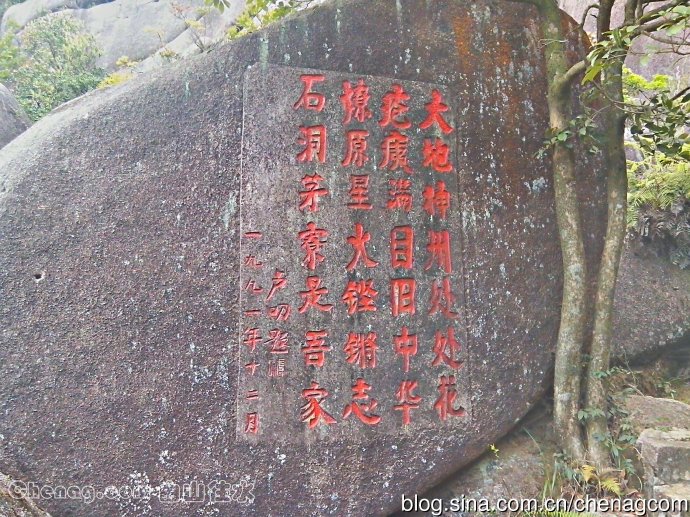 大地神州处处花
疮痍满目旧中华
燎原星火铿锵志
石洞茅寮是吾家
卢叨题
一九九一年十二月
blog.sina.com.cn/chenagcom